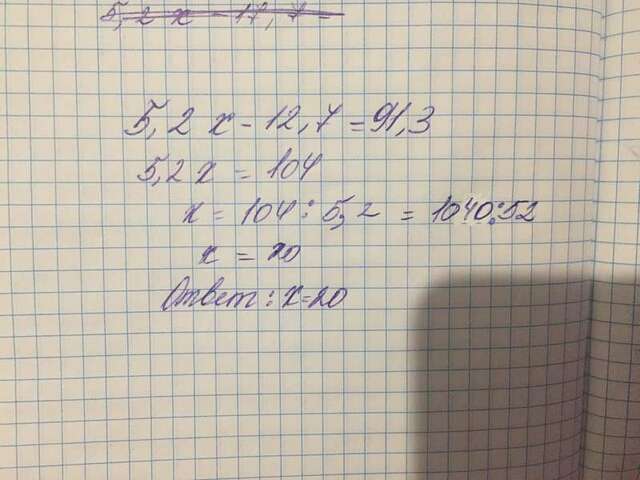 5,2 x - 17,7 =
5,2 x - 12,7 = 91,3
5,2 x = 104
x = 104 : 5,2 = 1040:52
x = 20
Ответ: x=20